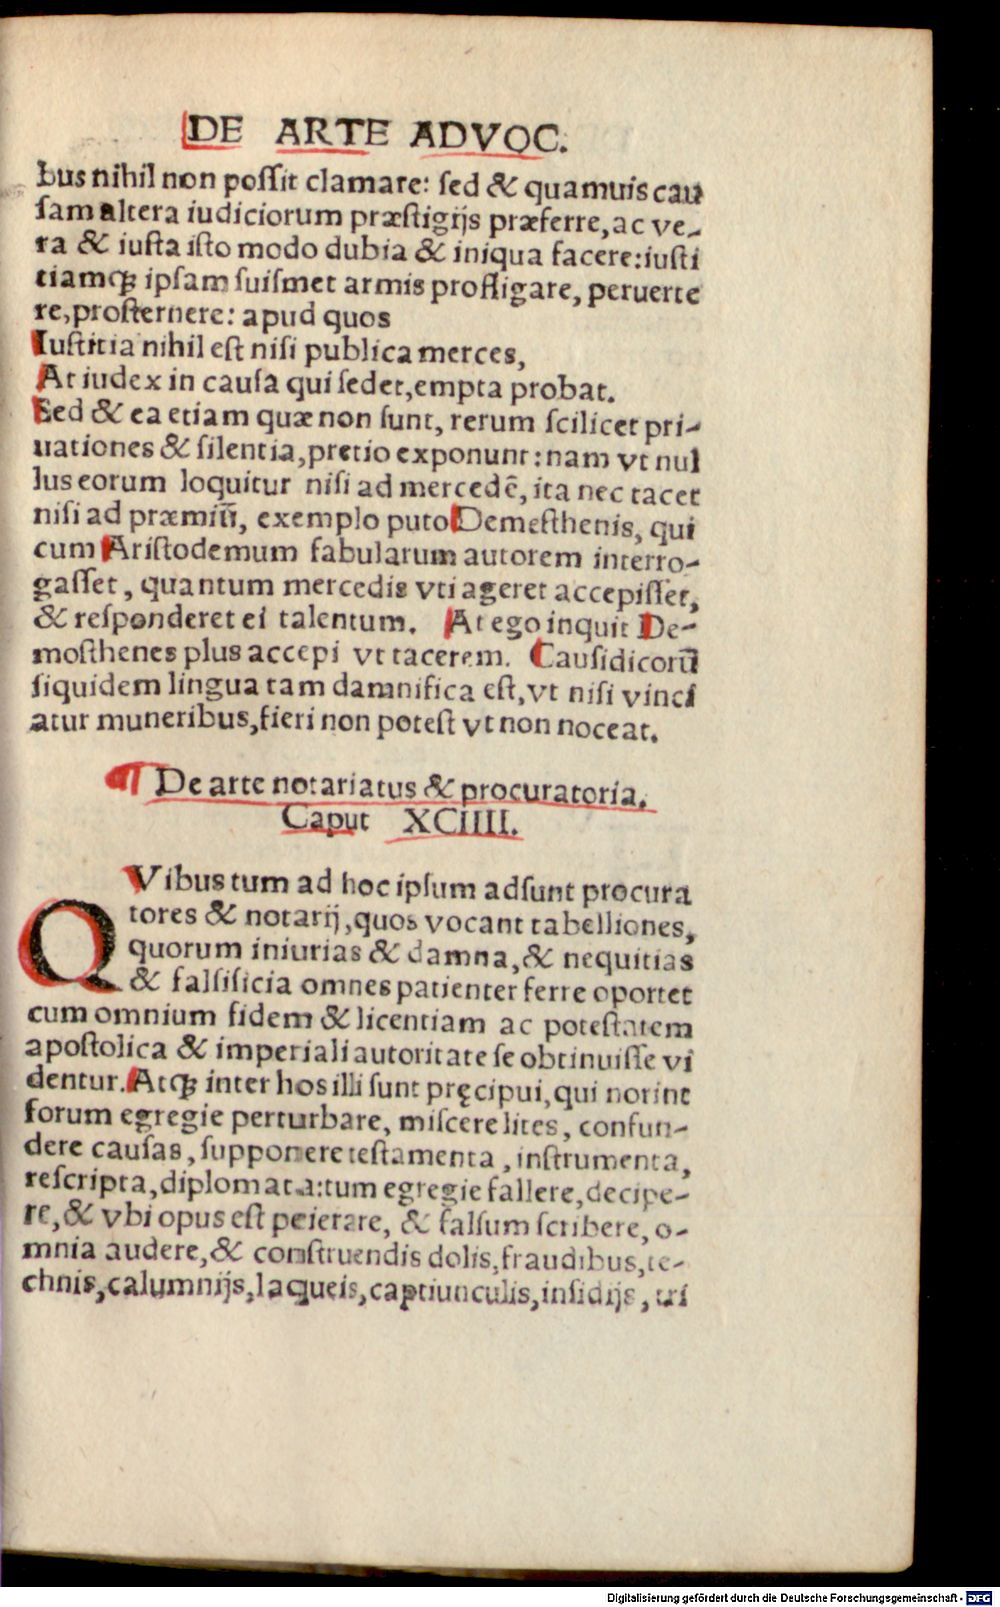 DE ARTE ADVOC.
bus nihil non possit clamare: sed & quamuis cau
sam altera iudiciorum præstigijs præferre, ac ve-
ra & iusta isto modo dubia & iniqua facere: iusti
tiamqꝫ ipsam suismet armis profligare, peruerte
re, prosternere: apud quos
Iustitia nihil est nisi publica merces,
At iudex in causa qui sedet, empta probat.
Sed & ea etiam quæ non sunt, rerum scilicet pri-
uationes & silentia, pretio exponunt: nam vt nul
lus eorum loquitur nisi ad mercedē, ita nec tacet
nisi ad præmiū, exemplo puto Demesthenis, qui
cum Aristodemum fabularum autorem interro-
gasset, quantum mercedis vti ageret accepisset,
& responderet ei talentum. At ego inquit De-
mosthenes plus accepi vt tacerem. Causidicorū
siquidem lingua tam damnifica est, vt nisi vinci
atur muneribus, fieri non potest vt non noceat.
¶ De arte notariatus & procuratoria.
Caput XCIIII.
QVibus tum ad hoc ipsum adsunt procura
tores & notarij, quos vocant tabelliones,
quorum iniurias & damna, & nequitias
& falsisicia omnes patienter ferre oportet
cum omnium fidem & licentiam ac potestatem
apostolica & imperiali autoritate se obtinuisse vi
dentur. Atqꝫ inter hos illi sunt pręcipui, qui norint
forum egregie perturbare, miscere lites, confun-
dere causas, supponere testamenta, instrumenta,
rescripta, diplomata: tum egregie fallere, decipe-
re, & vbi opus est peierare, & falsum scribere, o-
mnia audere, & construendis dolis, fraudibus, te-
chnis, calumnijs, laqueis, captiunculis, insidijs, tri
Digitalisierung gefördert durch die Deutsche Forschungsgemeinschaft - DFG